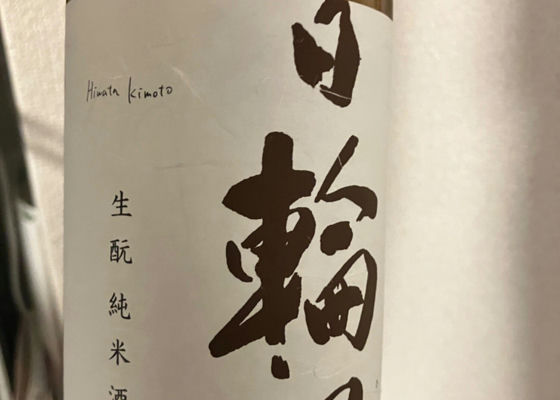 日輪
Hinata Kimoto
生酛純米酒